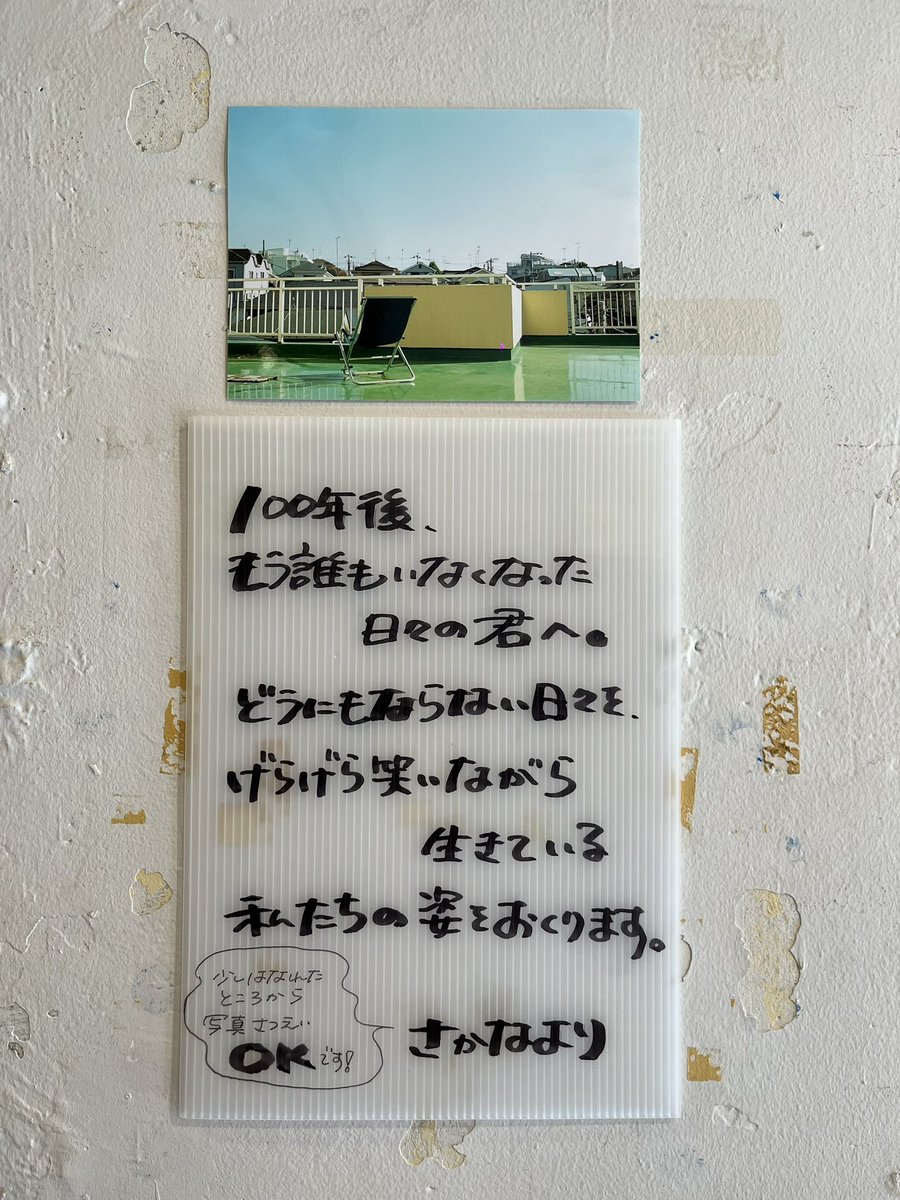 100年後、
もう誰もいなくなった
日々の君へ。
どうにもならない日々を、
げらげら笑いながら
生きている
私たちの姿をおくります。
さかなより
少しはなれた
ところから
写真さつえい
OKです!